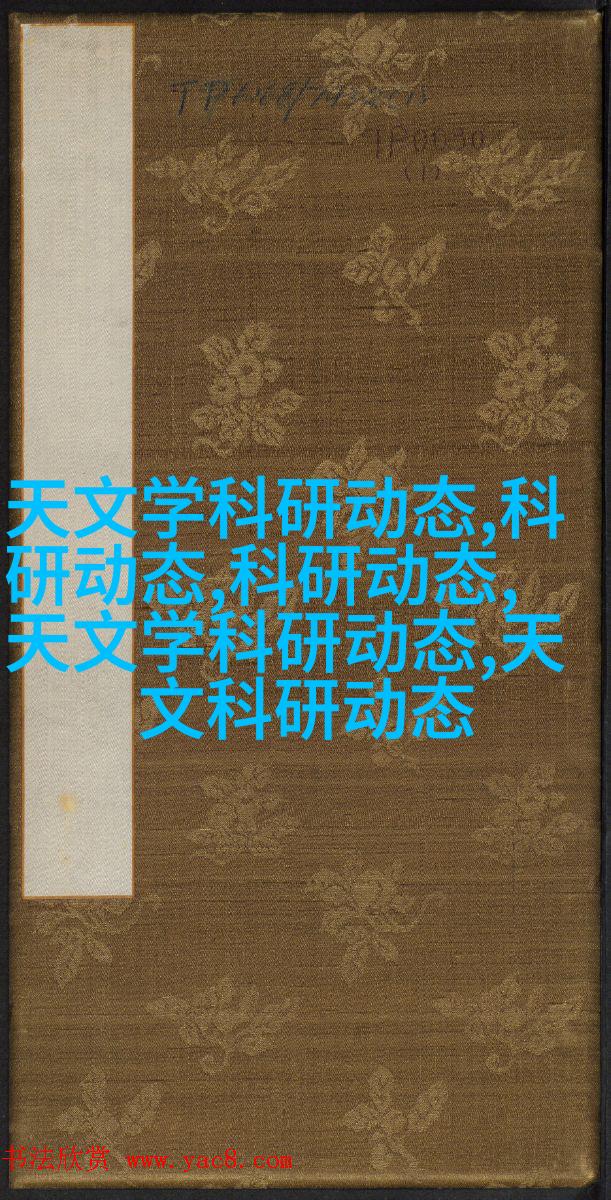 1P0030
(1)
天文学科研动态,科
研动态,科研动态,
天文学科研动态,天
文科研动态
书法欣赏 www.yac8.com